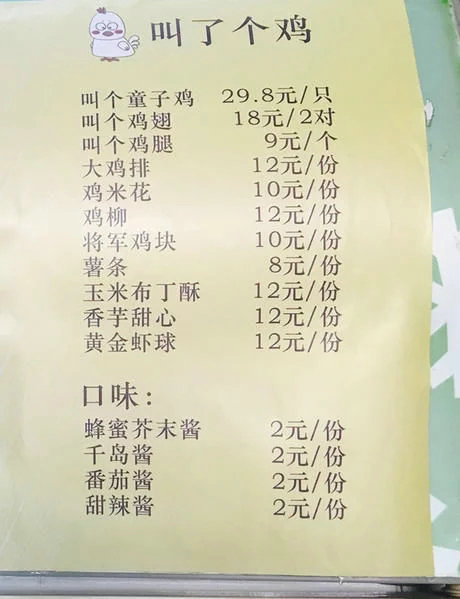 叫了个鸡
叫个童子鸡 29.8元/只
叫个鸡翅 18元/2对
叫个鸡腿 9元/个
大鸡排 12元/份
鸡米花 10元/份
鸡柳 12元/份
将军鸡块 10元/份
薯条 8元/份
玉米布丁酥 12元/份
香芋甜心 12元/份
黄金虾球 12元/份
口味:
蜂蜜芥末酱 2元/份
千岛酱 2元/份
番茄酱 2元/份
甜辣酱 2元/份